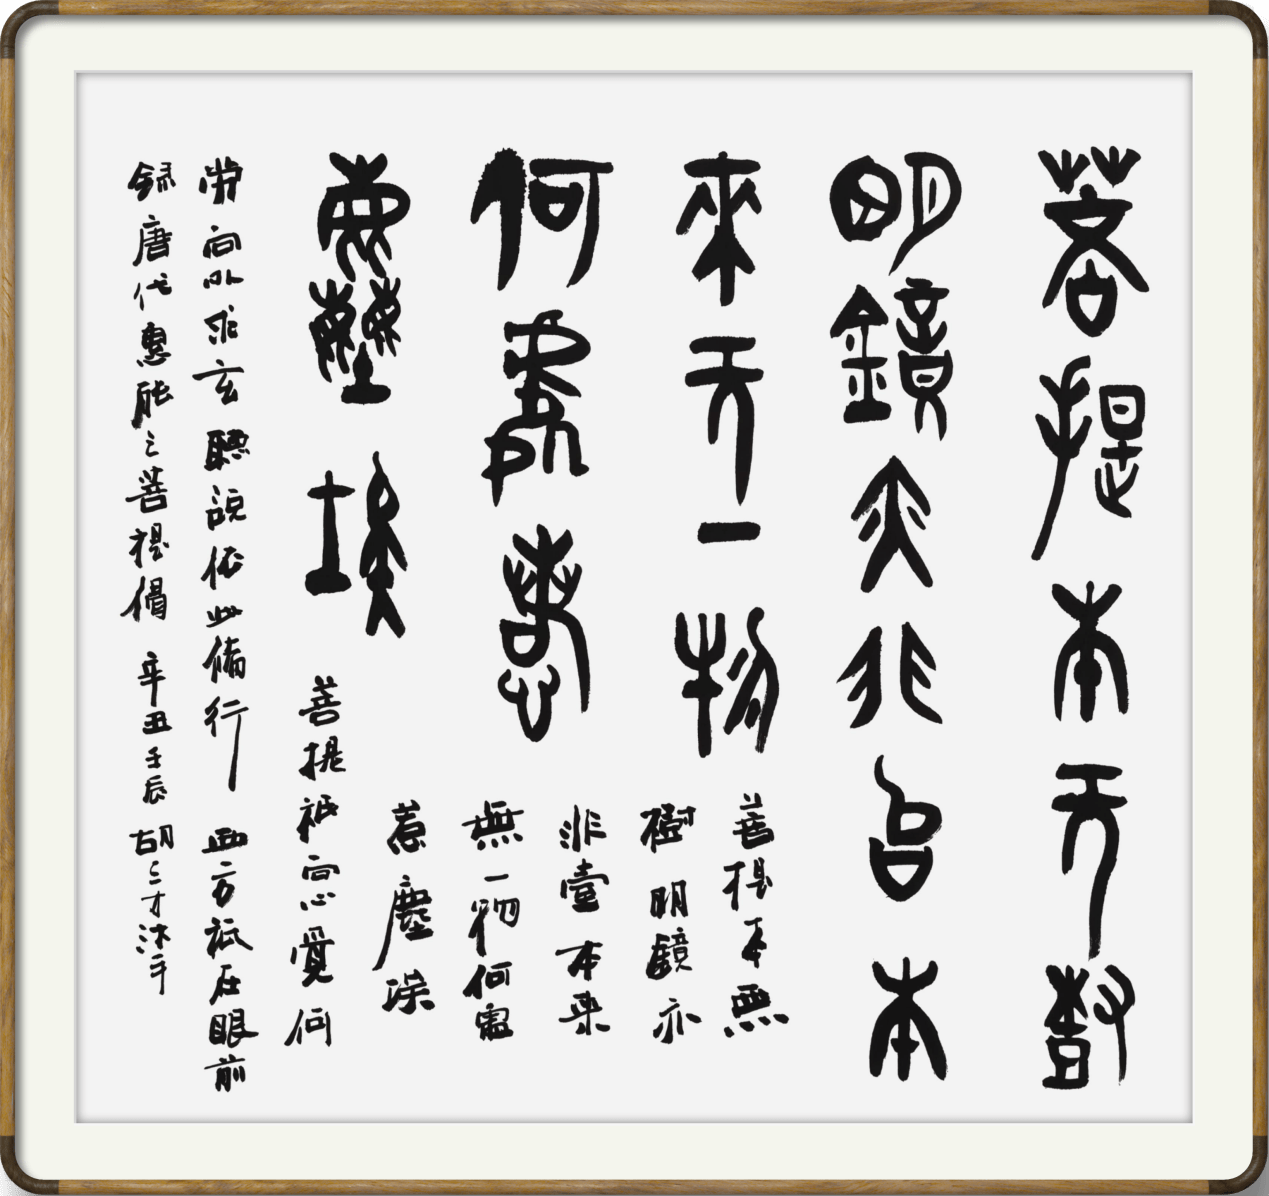 菩提本无樹
明鏡亦非台本
來无一物
何處惹
塵埃
菩提本無
樹明鏡亦
非臺本来
無一物何處
惹塵埃
菩提衹向心覓何
勞向外求玄聽說依此脩行西方衹在眼前
録唐代惠能之菩提偈 辛丑壬辰 胡三才沐手